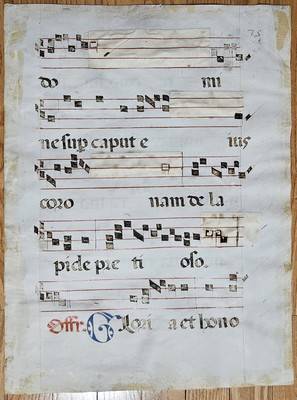 75
do mi
ne sup caput e ius
coro nam de la
pide pre ti oso.
Offr. Glori a et hono